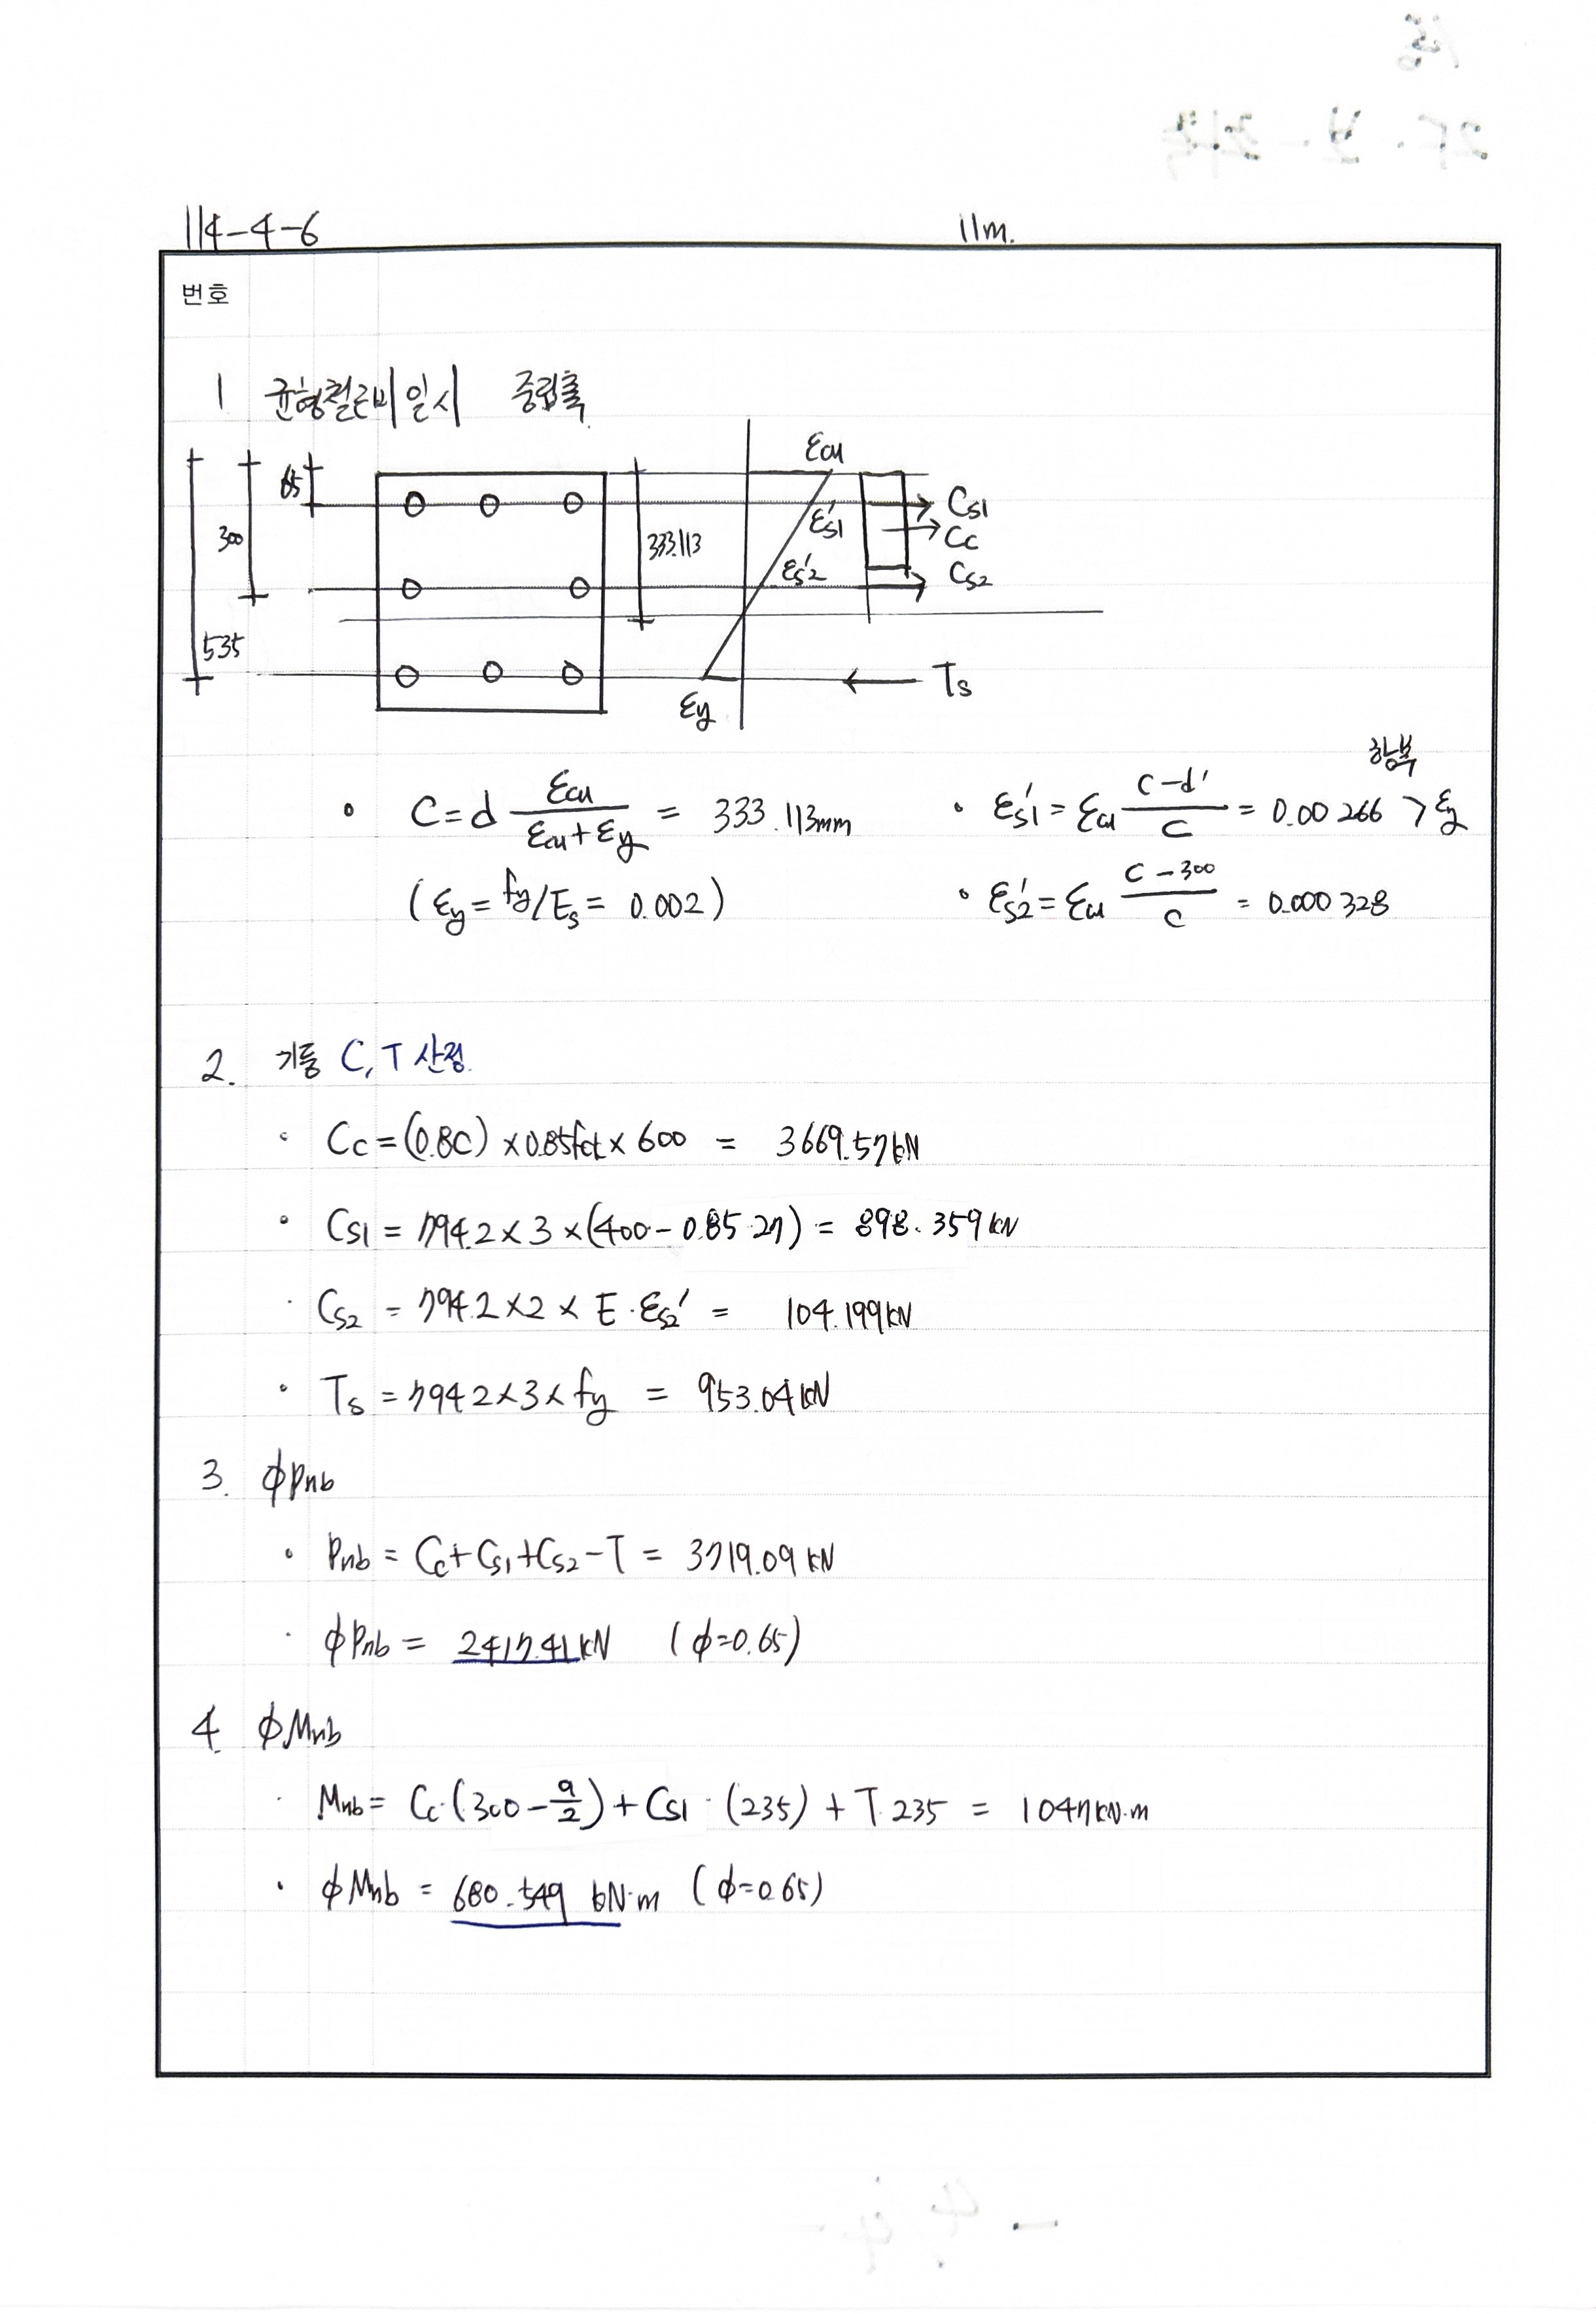 114-4-6 11m.
번호
1 균형철근비일시 중립축
65
300
535
333.113
εcu
εs1'
εs2'
εy
Cs1
Cc
Cs2
Ts
• C = d εcu/(εcu+εy) = 333.113mm
(εy = fy/Es = 0.002)
• εs1' = εcu (C-d')/C = 0.00266 > εy 항복
• εs2' = εcu (C-300)/C = 0.000328
2. 기둥 C, T 산정.
• Cc = (0.8C) × 0.85fck × 600 = 3669.57kN
• Cs1 = 794.2 × 3 × (400 - 0.85·27) = 898.359kN
· Cs2 = 794.2 × 2 × E·εs2' = 104.199kN
• Ts = 794.2 × 3 × fy = 953.04kN
3. ϕPnb
• Pnb = Cc+Cs1+Cs2-T = 3719.09kN
· ϕPnb = 2417.41kN (ϕ=0.65)
4. ϕMnb
· Mnb = Cc·(300-a/2) + Cs1·(235) + T·235 = 1047kN·m
· ϕMnb = 680.549 kN·m (ϕ=0.65)